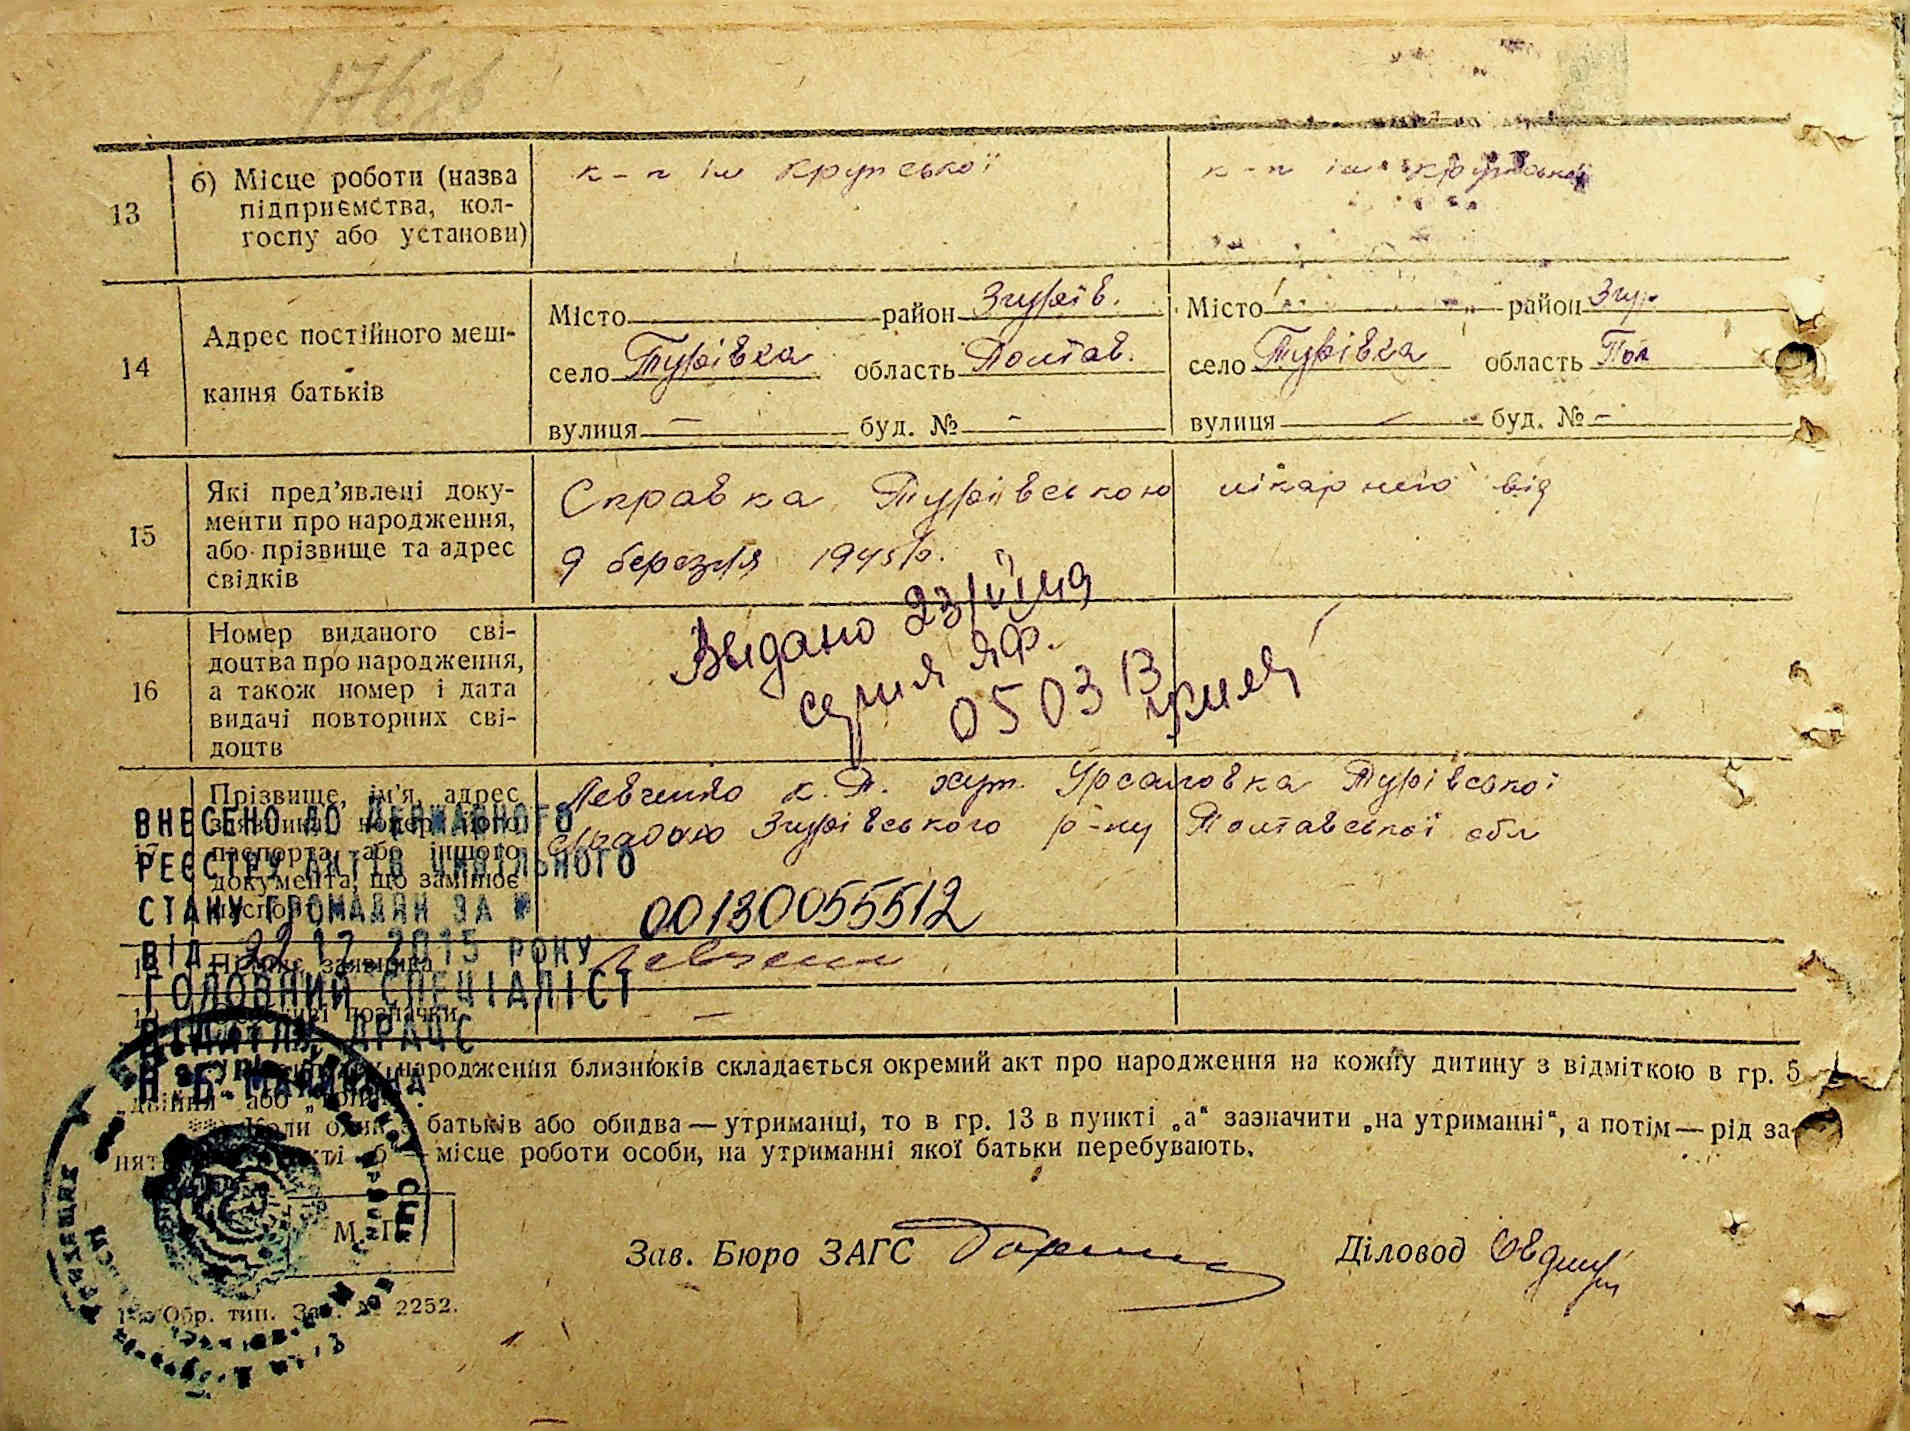 176зв
13 б) Місце роботи (назва к-п ім Крупської к-п ім Крупської
підприємства, кол-
госпу або установи)
Місто район Згурів. Місто район Згур.
14 Адрес постійного меш- село Турівка область Полтав. село Турівка область Пол
кання батьків
вулиця — буд. № - вулиця — буд. № -
15 Які пред’явлені доку- Справка Турівською лікарнею від
менти про народження, 9 березня 1945 р.
або прізвище та адрес
свідків
16 Номер виданого сві- Выдано 23/VI 49
доцтва про народження, серия ЯФ.
а також номер і дата 050313
видачі повторних сві-
доцтв
17 Прізвище, ім’я, адрес Левченко к. Д. хут. Турівської
заявника номер його Згурівського р-ну Полтавської обл
паспорта або іншого
документа, що замінює
паспорт
18 Підпис заявника Левченко
позначки —
ВНЕСЕНО ДО ДЕРЖАВНОГО
РЕЄСТРУ АКТІВ ЦИВІЛЬНОГО
СТАНУ ГРОМАДЯН ЗА № 00130055512
ВІД 22 12 2015 РОКУ
ГОЛОВНИЙ СПЕЦІАЛІСТ
ВІДДІЛУ ДРАЦС
народження близнюків складається окремий акт про народження на кожну дитину з відміткою в гр. 5
„двійня“ або
Коли один з батьків або обидва — утриманці, то в гр. 13 в пункті „а“ зазначити „на утриманні“, а потім — рід за-
няття „б“ — місце роботи особи, на утриманні якої батьки перебувають.
М. П.
Зав. Бюро ЗАГС Діловод
Обр. тип. Зак. № 2252.